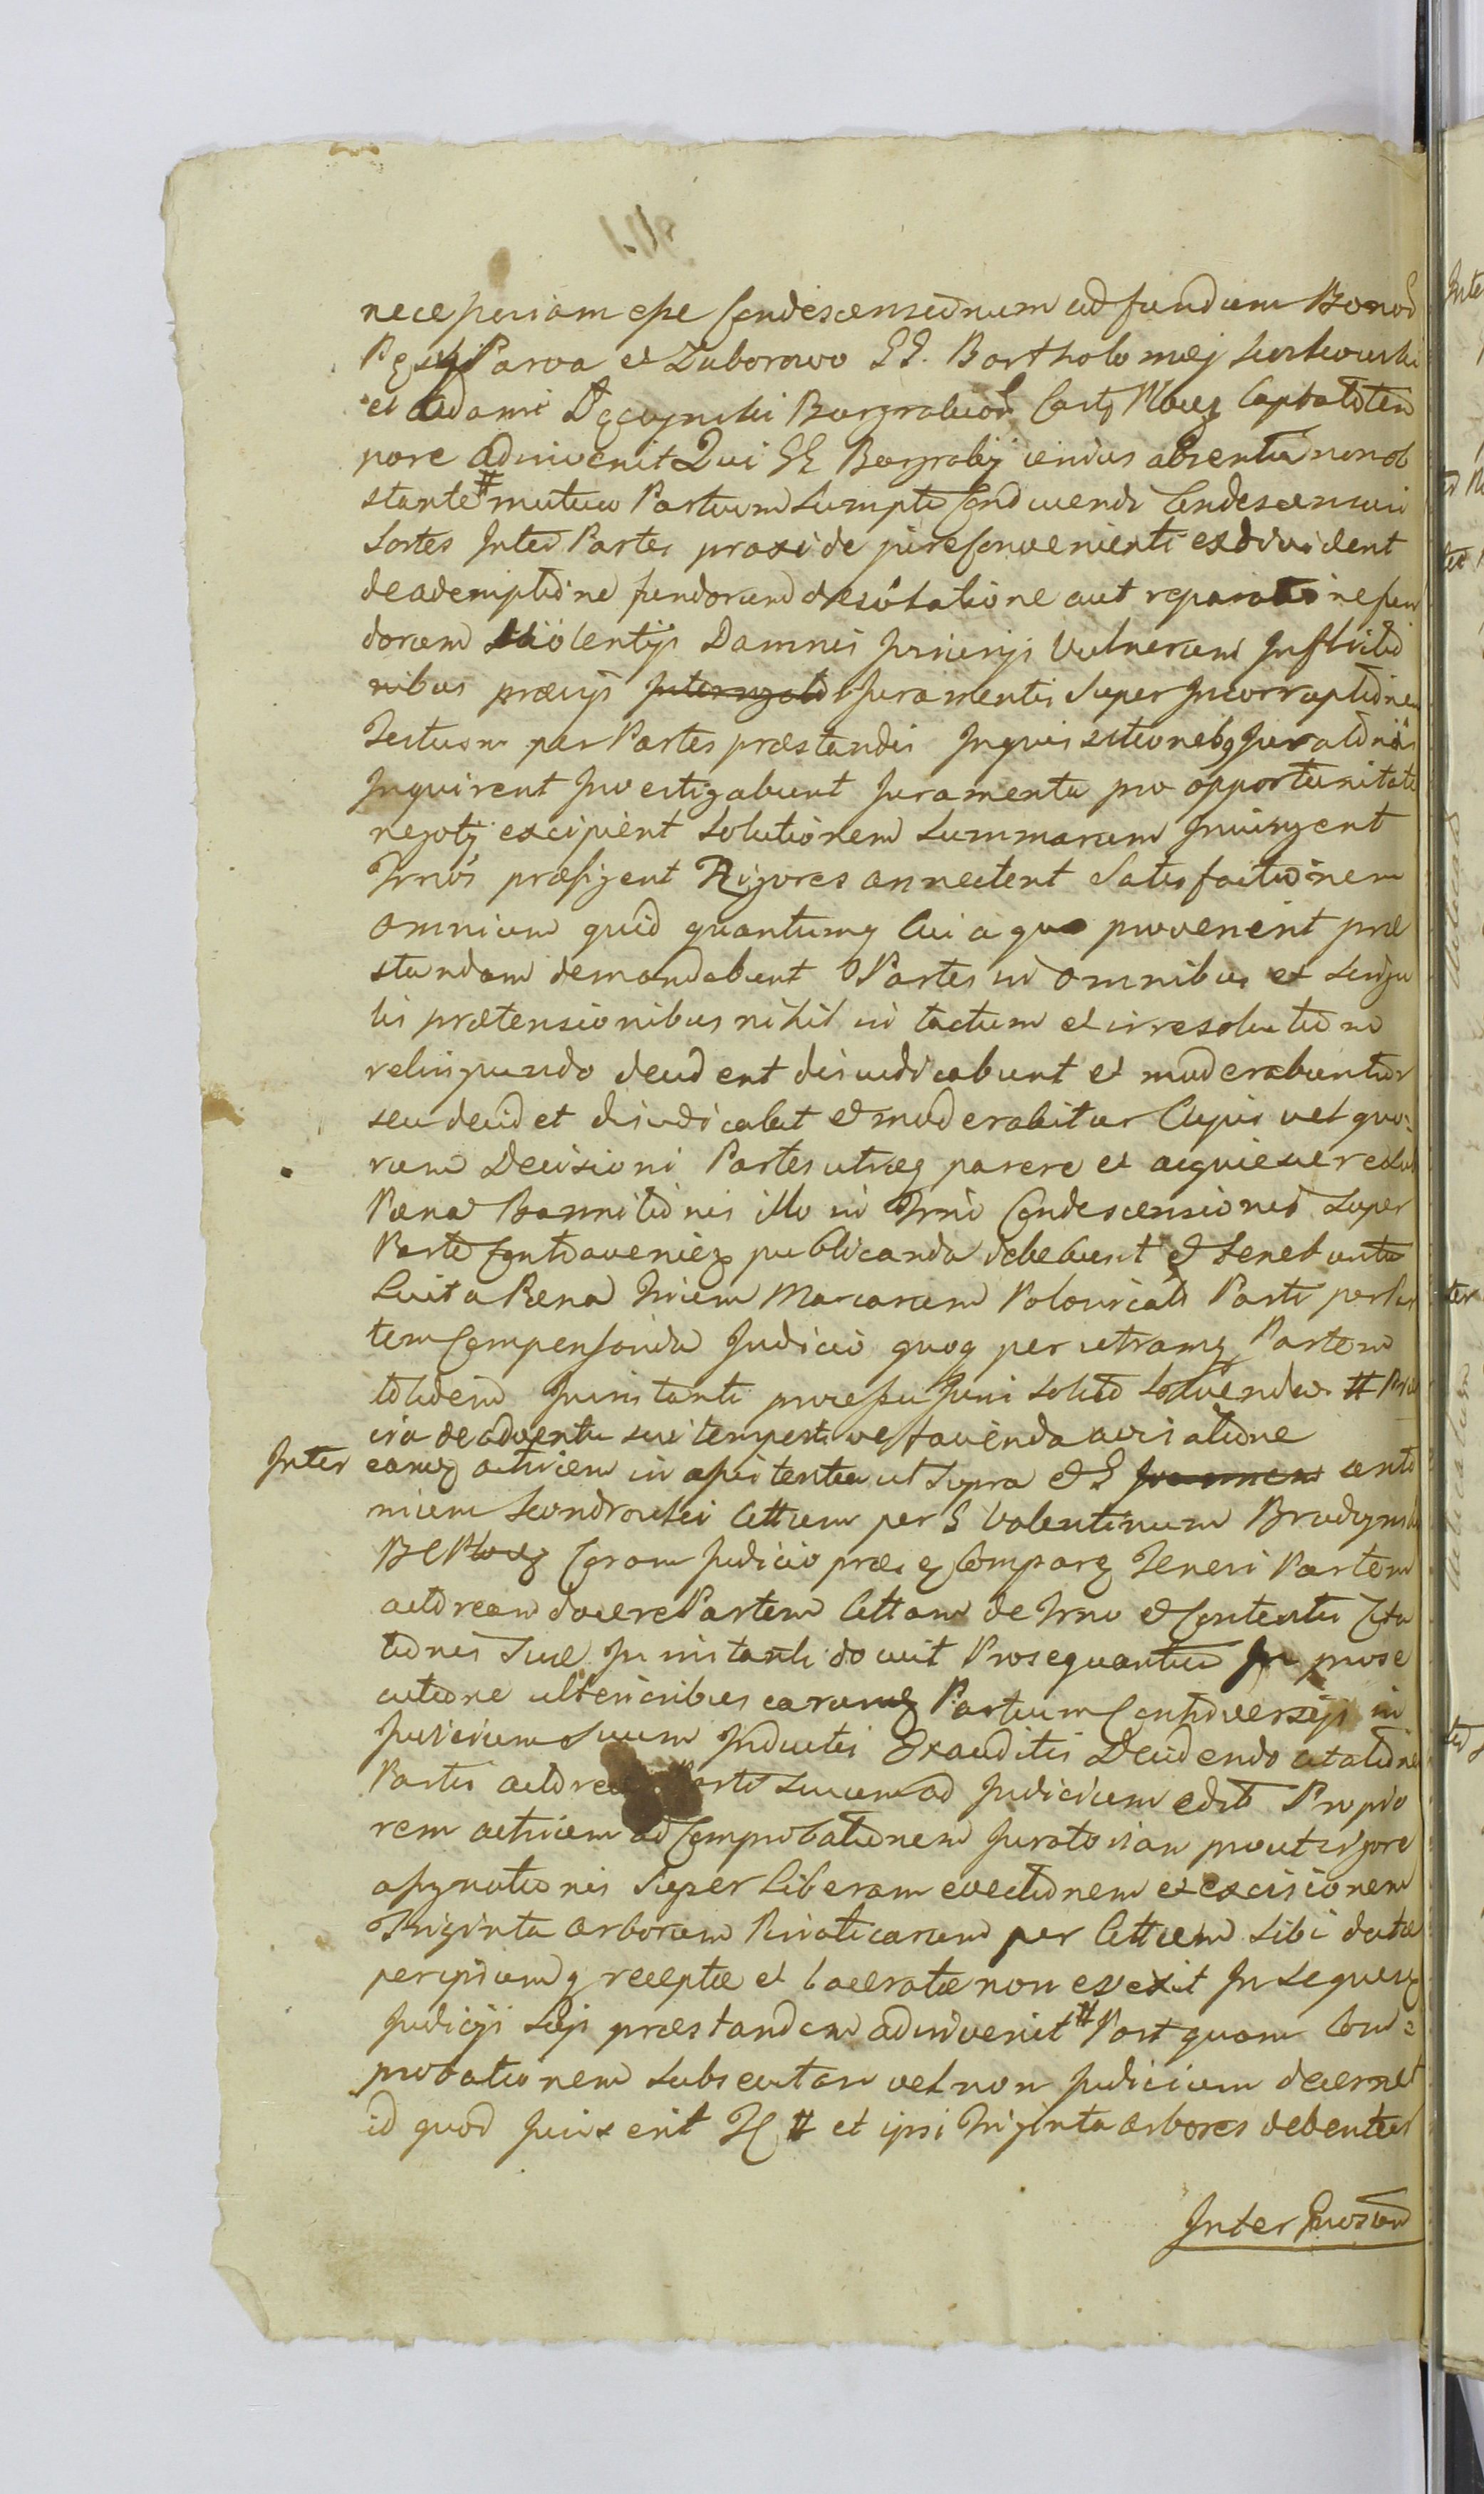 necessariam esse Condescensionum ad fundum Bonor
Parva et Zuborowo GG. Bartholomæj
et Adami Burgrabior Castr Capitalt tem
pore adinvenit Qui GG Burgrabij unius absentia non ob
stante # mutuo Partium Sumptu Conducendi Condescensuri
Sortes Inter Partes proxide jure convenienti exdivident
de ademptione fundorum desolatione aut reparatione fun
dorum violentijs Damnis Injurijs Vulnerum Inflictio
nibus prævijs Juramentis Super Incorruptione
Testium per Partes præstandis Inquisitionebq Juratorias
Inquirent Investigabunt Juramenta pro opportunitate
negotij excipient Solutionem Summarum Iniungent
Trnos præfigent Rigores annectent Satisfactionem
omnium quid quantumq Cui a quo provenerit præ
standam demandabunt Partes in omnibus et singu
lis prætensionibus nihil in tactum et irresolutum
relinquendo decident dijudicabunt et moderabuntur
seu decidet dijudicabit et moderabitur Cujus vel quo-
rum Decisioni Partes utræq parere et acquiescere sub
Pæna Bannitionis illo in Trno Condescensionis Super
Parte Contraveniez publicanda debebunt et tenebuntur
Luita Pæna Trium Marcarum Polonicalt Parti per Par
tem Compensanda Judicio quoq per utramq Partem
totidem Juristanti processu Juri solito Solvenda #
cia de adventu sui tempestive favenda avisatione
Inter eamq actricem in assistentia ut Supra et G anto
nium Cittum per G Valentinum
Coram Judicio præs q Comparq Teneri Partem
actoream docere Partem Cittam de Trno et Contentis Cita
tionis Suæ In instanti docuit Prosequantur In prose
cutione ulterioribus earumq Partium Controversijs in
Judicium Suum Inductis Exauditis Decidendo citatione
Partis actoreæ Parte Sucum ad Judicium edit Propio
rem actricem ad Comprobationem Juratoriam prout vigore
assignationis Super liberam evectionem et excisionem
Triginta arborum per Cittum Sibi datæ
per ipsumq receptæ et laceratæ non evexit In sequenq
Judicijs Suis præstandam adinvenit # Post quam Com-
probationem Subsecutam vel non Judicium decernet
id quod Juris erit # et ipsi Triginta arbores debentur
Inter